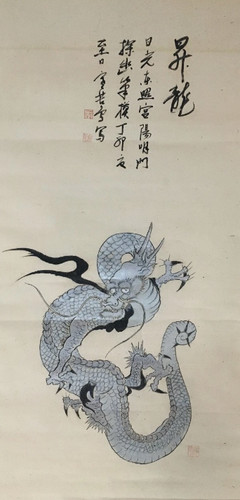 昇龍
日光東照宮陽明門
探幽筆模丁卯夏
至日
写